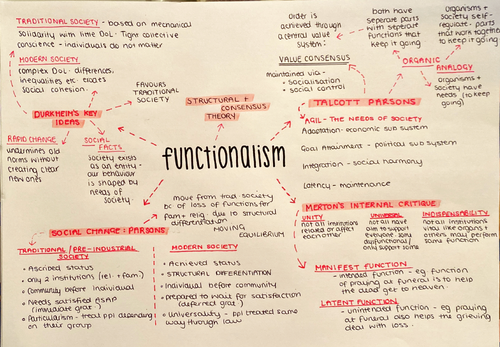 TRADITIONAL SOCIETY - based on mechanical
solidarity with little DoL. Tight collective
conscience - individuals do not matter
MODERN SOCIETY
complex DoL - differences.
inequalities etc erodes
social cohesion.
FAVOURS
TRADITIONAL
SOCIETY
DURKHEIM'S KEY
IDEAS
RAPID CHANGE
undermines old
norms without
creating clear
new ones
SOCIAL
FACTS
Society exists
as an entity - our
behaviour
is shaped by
needs of
society.
STRUCTURAL +
CONSENSUS
THEORY
functionalism
order is
achieved through
a central value
system:
VALUE CONSENSUS
maintained via -
• socialisation
• social control
both have
seperate parts
with seperate
functions that
keep it going
organisms +
society self-
regulate - parts
that work together
to keep it going
ORGANIC
ANALOGY
organisms +
society have
needs (to keep
going)
TALCOTT PARSONS
AGIL - THE NEEDS OF SOCIETY
Adaptation - economic sub system
Goal Attainment - political sub system
Integration - social harmony
Latency - maintenance
MERTON'S INTERNAL CRITIQUE
UNITY
not all institutions
related or affect
eachother
UNIVERSAL
not all have
aim to support
everyone. some
dysfunctional /
only support some
INDISPENSABILITY
not all institutions
vital like organs +
others may perform
same function
MANIFEST FUNCTION
- intended function - eg function
of praying at funeral is to help
the dead get to heaven
LATENT FUNCTION
- unintended function - eg praying
at funeral also helps the grieving
deal with loss.
SOCIAL CHANGE: PARSONS
move from trad. society
bc of loss of functions for
fam + relig. due to structural
differentiation
MOVING
EQUILIBRIUM
TRADITIONAL / PRE-INDUSTRIAL
SOCIETY
• Ascribed status
• only 2 institutions (rel. + fam.)
• Community before individual
• Needs satisfied ASAP
(immediate grat.)
• Particularism - treat ppl depending
on their group
MODERN SOCIETY
• Achieved status
• STRUCTURAL DIFFERENTIATION
• Individual before community
• prepared to wait for satisfaction
(deferred grat.)
• Universality - ppl treated same
way through law